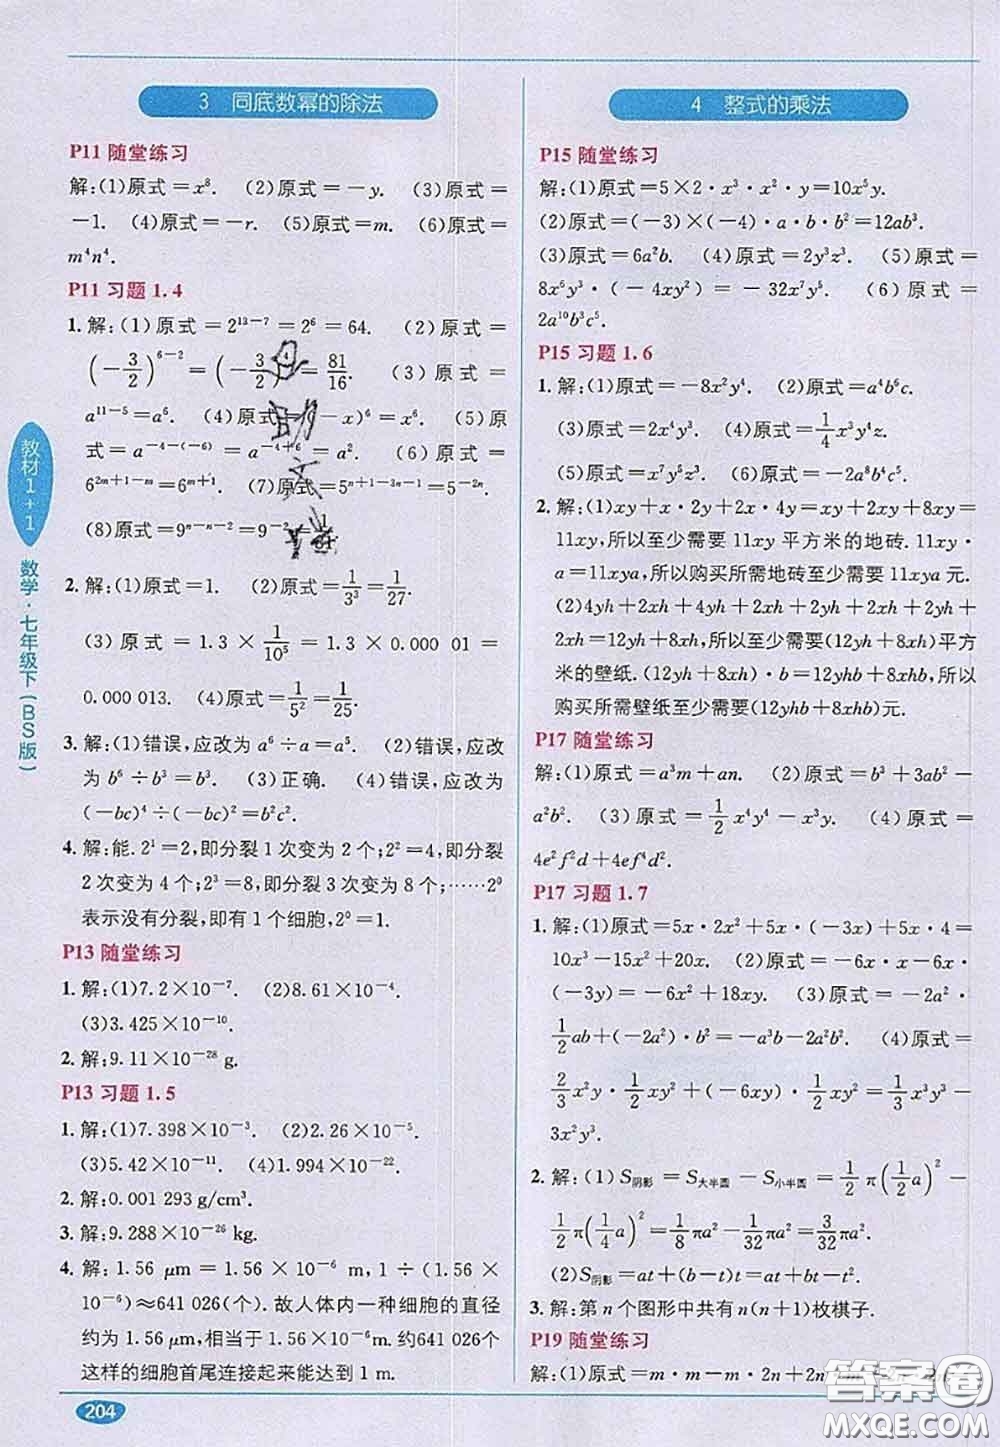 3 同底数幂的除法
P11 随堂练习
解:(1)原式=x⁸. (2)原式=-y. (3)原式=
-1. (4)原式=-r. (5)原式=m. (6)原式=
m⁴n⁴.
P11 习题 1.4
1. 解:(1)原式=2¹³⁻⁷=2⁶=64. (2)原式=
(-3/2)⁶⁻²=(-3/2)⁴=81/16. (3)原式=
a¹¹⁻⁵=a⁶. (4)原式=(-x)⁶=x⁶. (5)原
式=a⁻⁴⁻⁽⁻⁶⁾=a⁻⁴⁺⁶=a². (6)原式=
6²ᵐ⁺¹⁻ᵐ=6ᵐ⁺¹. (7)原式=5ⁿ⁺¹⁻³ⁿ⁻¹=5⁻²ⁿ.
(8)原式=9ⁿ⁻ⁿ⁻²=9⁻²=1/81.
2. 解:(1)原式=1. (2)原式=1/3³=1/27.
(3)原式=1.3×1/10⁵=1.3×0.000 01=
0.000 013. (4)原式=1/5²=1/25.
3. 解:(1)错误,应改为a⁶÷a=a⁵. (2)错误,应改
为b⁶÷b³=b³. (3)正确. (4)错误,应改为
(-bc)⁴÷(-bc)²=b²c².
4. 解:能.2¹=2,即分裂1次变为2个;2²=4,即分裂
2次变为4个;2³=8,即分裂3次变为8个;……2⁰
表示没有分裂,即有1个细胞,2⁰=1.
P13 随堂练习
1. 解:(1)7.2×10⁻⁷. (2)8.61×10⁻⁴.
(3)3.425×10⁻¹⁰.
2. 解:9.11×10⁻²⁸ g.
P13 习题 1.5
1. 解:(1)7.398×10⁻³. (2)2.26×10⁻⁵.
(3)5.42×10⁻¹¹. (4)1.994×10⁻²².
2. 解:0.001 293 g/cm³.
3. 解:9.288×10⁻²⁶ kg.
4. 解:1.56 μm=1.56×10⁻⁶ m,1÷(1.56
×10⁻⁶)≈641 026(个).故人体内一种细胞的直径
约为1.56 μm,相当于1.56×10⁻⁶ m.约641 026个
这样的细胞首尾连接起来能达到1 m.
4 整式的乘法
P15 随堂练习
解:(1)原式=5×2·x³·x²·y=10x⁵y.
(2)原式=(-3)×(-4)·a·b·b²=12ab³.
(3)原式=6a²b. (4)原式=2y³z³. (5)原式=
8x⁶y³·(-4xy²)=-32x⁷y⁵. (6)原式=
2a¹⁰b³c⁵.
P15 习题 1.6
1. 解:(1)原式=-8x²y⁴. (2)原式=a⁴b⁶c.
(3)原式=2x⁴y³. (4)原式=1/4x³y⁴z.
(5)原式=x⁷y⁵z. (6)原式=-2a⁸b²c⁴.
2. 解:(1)xy+x·2y+2x·4y=xy+2xy+8xy=
11xy,所以至少需要11xy平方米的地砖.11xy·
a=11xya,所以购买所需地砖至少需要11xya元.
(2)4yh+2xh+4xh+2yh+2xh+2yh+4yh+
2xh=12yh+8xh,所以至少需要(12yh+8xh)平方
米的壁纸.(12yh+8xh)·b=12yhb+8xhb,所以
购买所需壁纸至少需要(12yhb+8xhb)元.
P17 随堂练习
解:(1)原式=a³m+an. (2)原式=b³+3ab²-
a²b². (3)原式=1/2x⁴y⁴-x³y. (4)原式=
4e²f²d+4ef⁴d².
P17 习题 1.7
1. 解:(1)原式=5x·2x²+5x·(-3x)+5x·4=
10x³-15x²+20x. (2)原式=-6x·x-6x·
(-3y)=-6x²+18xy. (3)原式=-2a²·
1/2ab+(-2a²)·b²=-a³b-2a²b². (4)原式=
2/3x²y·1/2xy+(-6xy)·1/2xy=1/3x³y³-
3x²y³.
2. 解:(1)S阴影=S大半圆-S小半圆=1/2π(1/2a)²-
1/2π(1/4a)²=1/8πa²-1/32πa²=3/32πa².
(2)S阴影=at+(b-t)t=at+bt-t².
3. 解:第n个图形中共有n(n+1)枚棋子.
P19 随堂练习
解:(1)原式=m·m-m·2n+2n
教材1+1
数学·七年级下(BS版)
204
答案圈
MXQE.COM